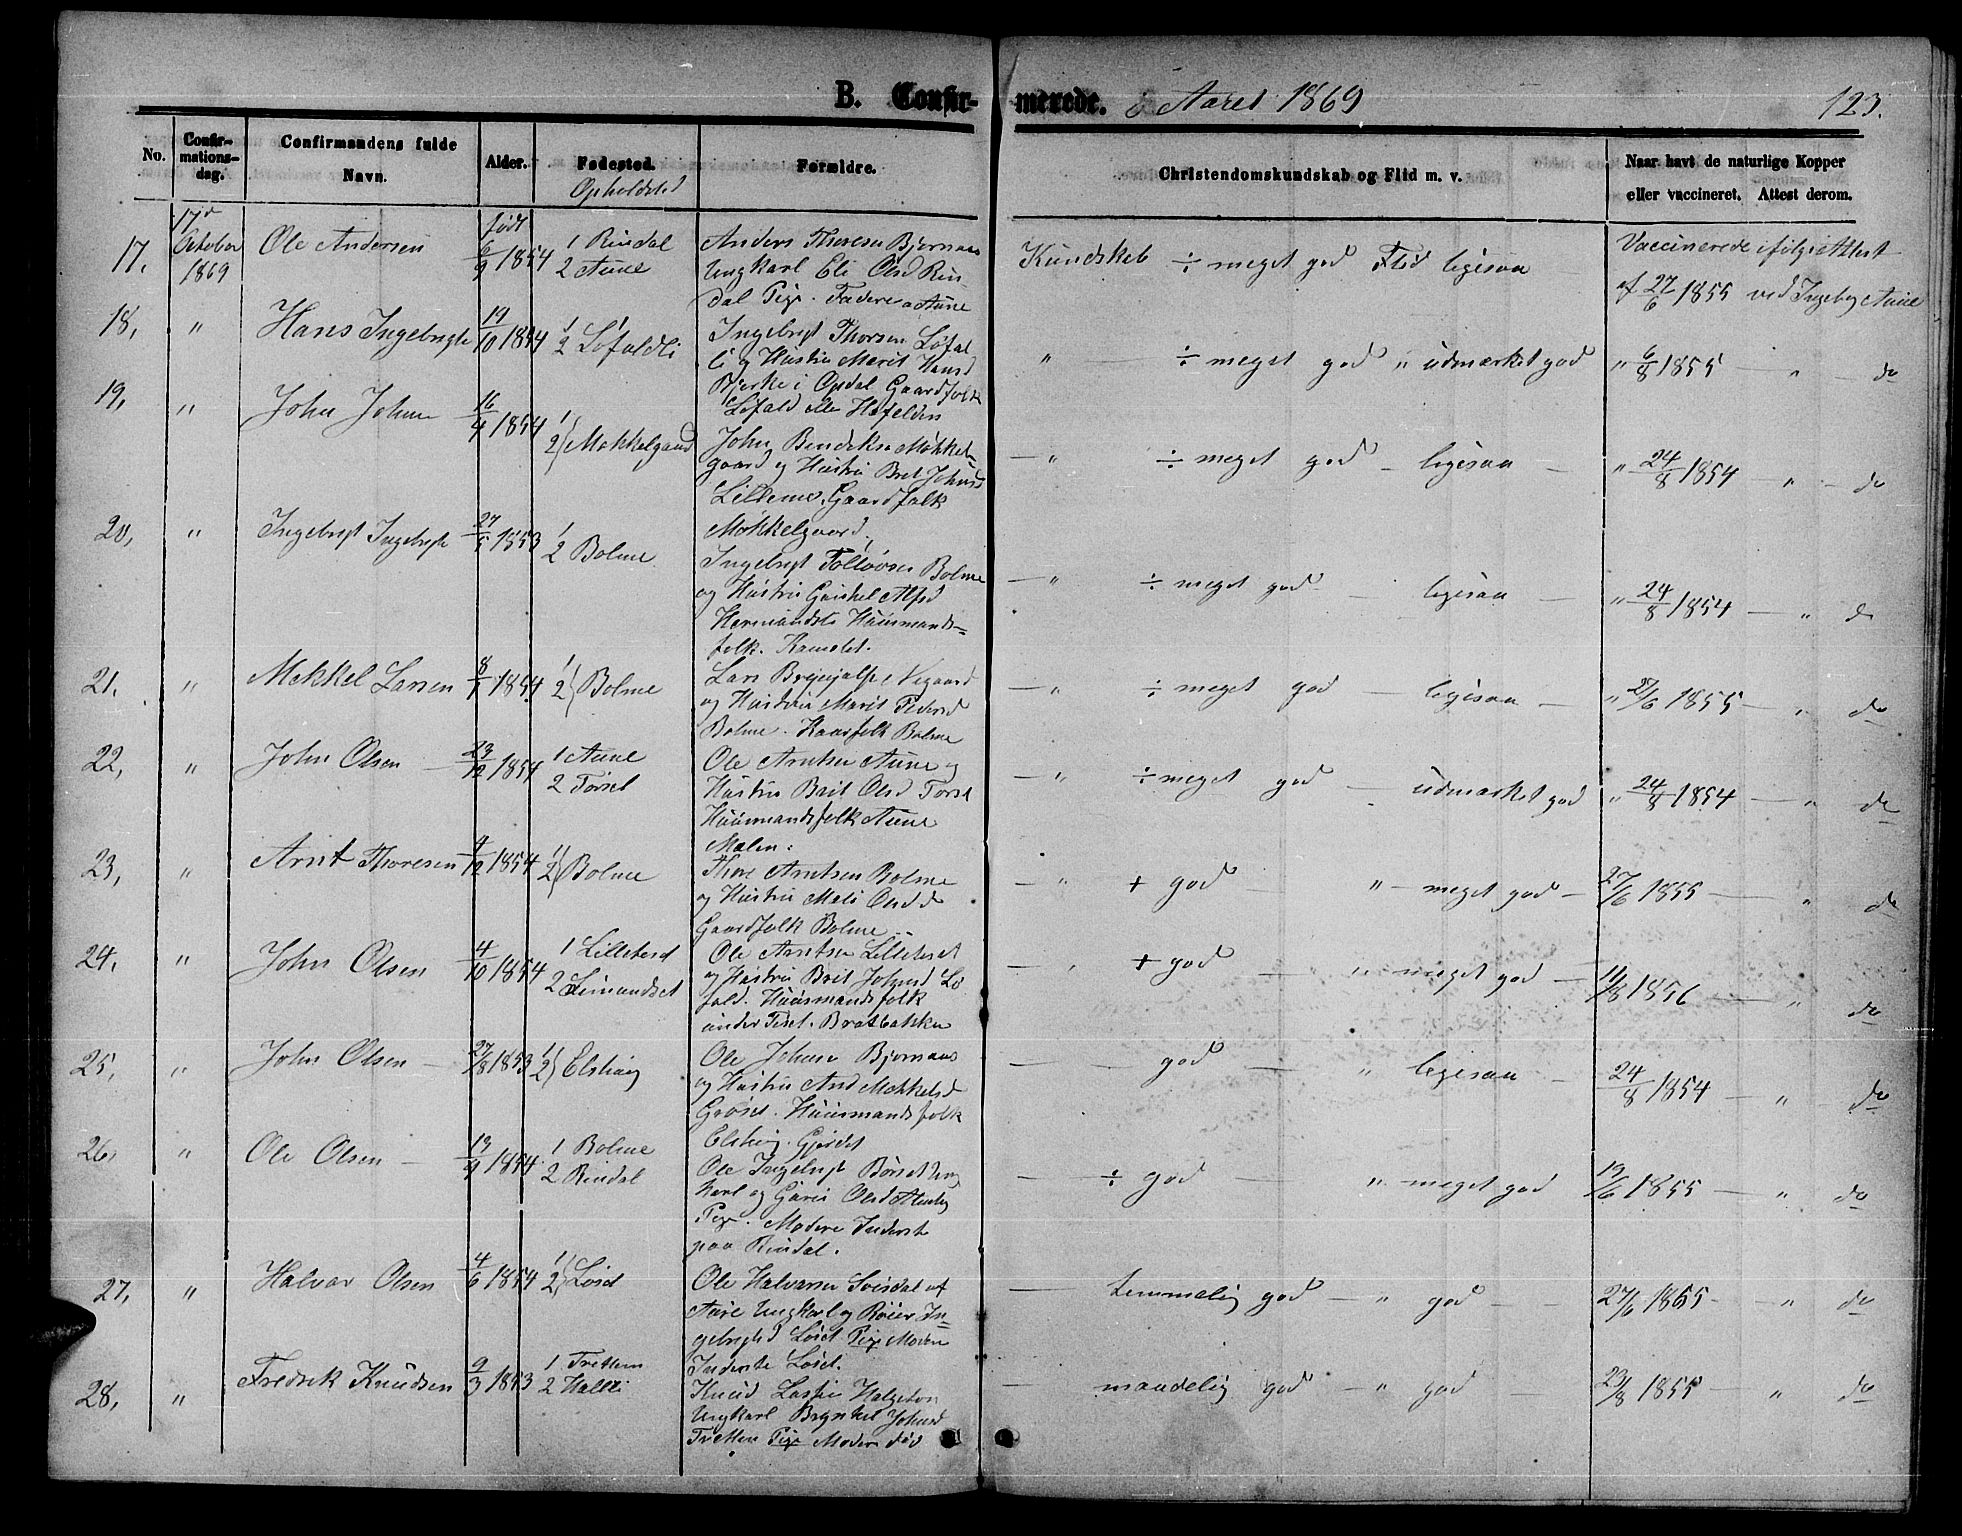 B. Confirmerede. Aaret 1869
123.
No. Confirmationsdag. Confirmandens fulde Navn. Alder. Fødested. Opholdsted Forældre. Christendomskundskab og Flid m. v. Naar havt de naturlige Kopper eller vaccineret. Attest derom.
17. 17d October 1869 Ole Andersen født 6/9 1854 1 Rindal 2 Aune
Anders Thoresen
Ungkarl Eli Olsd Rin-
dal Pige. Aune
Kundskab ÷ meget god Flid ligesaa
Vaccinerede ifølge Attest
af 27/6 1855 ved Aune
18, " Hans Ingebrigts 19/10 1854 1 2 Løfaldli
Ingebrigt Thorsen Løfal
li og Hustru Marit Hansd
Bjerke i Opdal Gaardfolk
Løfald
" ÷ meget god " udmærket god " 6/8 1855 — " — do
19, " John Johnsen 16/4 1854 1 2 Mokkelgaard
John Bendiksen Mokkel-
gaard og Hustru Brit Johnsd
Lillemo. Gaardfolk
Mokkelgaard
— " ÷ meget god — ligesaa — " 24/8 1854 — " — do
20, " Ingebrigt Ingebrigts 27/5 1853 1 2 Bolme
Ingebrigt Bolme
og Hustru Alfsd
Huusmands=
folk.
— " ÷ meget god — ligesaa — " 24/8 1854 — " do
21. " Mekkel Larsen 8/1 1854 1 2 Bolme
Lars
og Hustru Marit Pedersd
Bolme. Bolme
— " ÷ meget god — ligesaa — " 27/6 1855 — " do
22, " John Olsen — 23/12 1854 1 Aune 2 Torset
Ole Arntsen Aune og
Hustru Brit Olsd Torset
Huusmandsfolk Aune
— " ÷ meget god — udmærket god " 24/8 1854 — " do
23, " Arnt Thoresen 4/12 1854 1 2 Bolme
Thore Arntsen Bolme
og Hustru Mali Olsd do
Gaardfolk Bolme
— " + god — " — meget god — 27/6 1855 — " do
24. " John Olsen 4/10 1854 1 Lilleteset 2
Ole Arntsen Lilleteset
og Hustru Brit Johnsd Lø
fald. Huusmandsfolk
under Teset. Bratbakken
— " + god — " meget god — 11/8 1856 — " do
25, " John Olsen — 27/8 1853 1 2 Elshaug
Ole Johnsen Bjørnaas
og Hustru And Mekkelsd
Huusmandsfolk
Elshaug. Gjerdet
— god " ligesaa — 24/8 1854 — " do
26, " Ole Olsen — 19/4 1854 1 Bolme 2 Rindal
Ole Ingebrigt Børset Ung
karl og Olsd
Pige. Modere Inderst
paa Rindal.
— ÷ god — " meget god 19/6 1855 — " do
27, " Halvar Olsen 4/6 1854 1 2 Løset
Ole Halvarsen af
Aure Ungkarl og In=
gebrigtsd Løset Pige Moderen
Inderste Løset.
— temmelig god — " god — 27/6 1855 — " do
28, " Fredrik Knudsen 9/3 1853 1 Trettem 2 Halsli
Knud Halgeton
Ungkarl Johnsd
Tretten Pige Moderen død
— maadelig god — " god — 23/8 1855 — " do